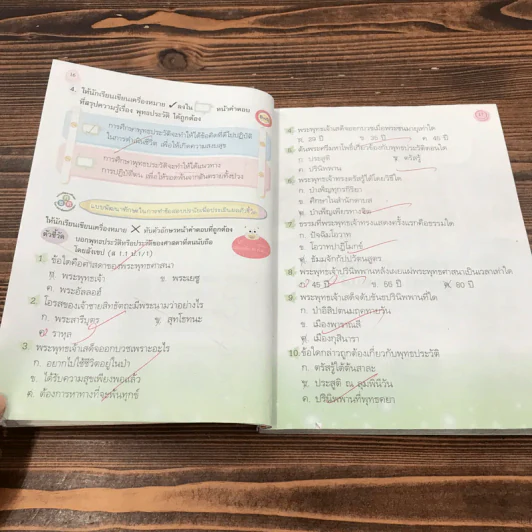 ๔. ให้นักเรียนเขียนเครื่องหมาย ✓ ลงใน หน้าคำตอบ
ที่สรุปความรู้เรื่อง พุทธประวัติ ได้ถูกต้อง
การศึกษาพุทธประวัติจะทำให้ได้ข้อคิดที่ดีไปปฏิบัติ
ในการดำเนินชีวิต เพื่อให้เกิดความสงบสุข
การศึกษาพุทธประวัติจะทำให้ได้แนวทาง
การปฏิบัติตน เพื่อให้รอดพ้นจากอันตรายทั้งปวง
ให้นักเรียนเขียนเครื่องหมาย ✗ ทับตัวอักษรหน้าคำตอบที่ถูกต้อง
ตัวชี้วัด บอกพุทธประวัติหรือประวัติของศาสดาที่ตนนับถือ
โดยสังเขป (ส ๑.๑ ป.๑/๑)
1. ข้อใดคือศาสดาของพระพุทธศาสนา
ก. พระพุทธเจ้า ข. พระเยซู
ค. พระอัลลอฮ์
2. โอรสของเจ้าชายสิทธัตถะมีพระนามว่าอย่างไร
ก. พระสารีบุตร ข. สุทโธทนะ
ค. ราหุล
3. พระพุทธเจ้าเสด็จออกบวชเพราะอะไร
ก. อยากไปใช้ชีวิตอยู่ในป่า
ข. ได้รับความสุขเพียงพอแล้ว
ค. ต้องการหาทางที่จะพ้นทุกข์
พระพุทธเจ้าเสด็จออกบวชเมื่อพระชนมายุเท่าใด
ก. 29 ปี ข. 35 ปี ค. 45 ปี
ต้นพระศรีมหาโพธิ์เกี่ยวข้องกับพุทธประวัติตอนใด
ก. ประสูติ ข. ตรัสรู้
ค. ปรินิพพาน
พระพุทธเจ้าทรงตรัสรู้ได้โดยวิธีใด
ก. บำเพ็ญทุกรกิริยา
ข. ศึกษาในสำนักดาบส
ค. บำเพ็ญเพียรทางจิต
7. ธรรมที่พระพุทธเจ้าทรงแสดงครั้งแรกคือธรรมใด
ก. ปัจฉิมโอวาท
ข. โอวาทปาฏิโมกข์
ค. ธัมมจักกัปปวัตตนสูตร
8. พระพุทธเจ้าปรินิพพานหลังเผยแผ่พระพุทธศาสนาเป็นเวลาเท่าใด
ก. 45 ปี ข. ปี ค. 80 ปี
9. พระพุทธเจ้าเสด็จดับขันธปรินิพพานที่ใด
ก. ป่าอิสิปตนมฤคทายวัน
ข. เมืองพาราณสี
ค. เมืองกุสินารา
10. ข้อใดกล่าวถูกต้องเกี่ยวกับพุทธประวัติ
ก. ตรัสรู้ใต้ต้นสาละ
ข. ประสูติ ณ ลุมพินีวัน
ค. ปรินิพพานที่พุทธคยา